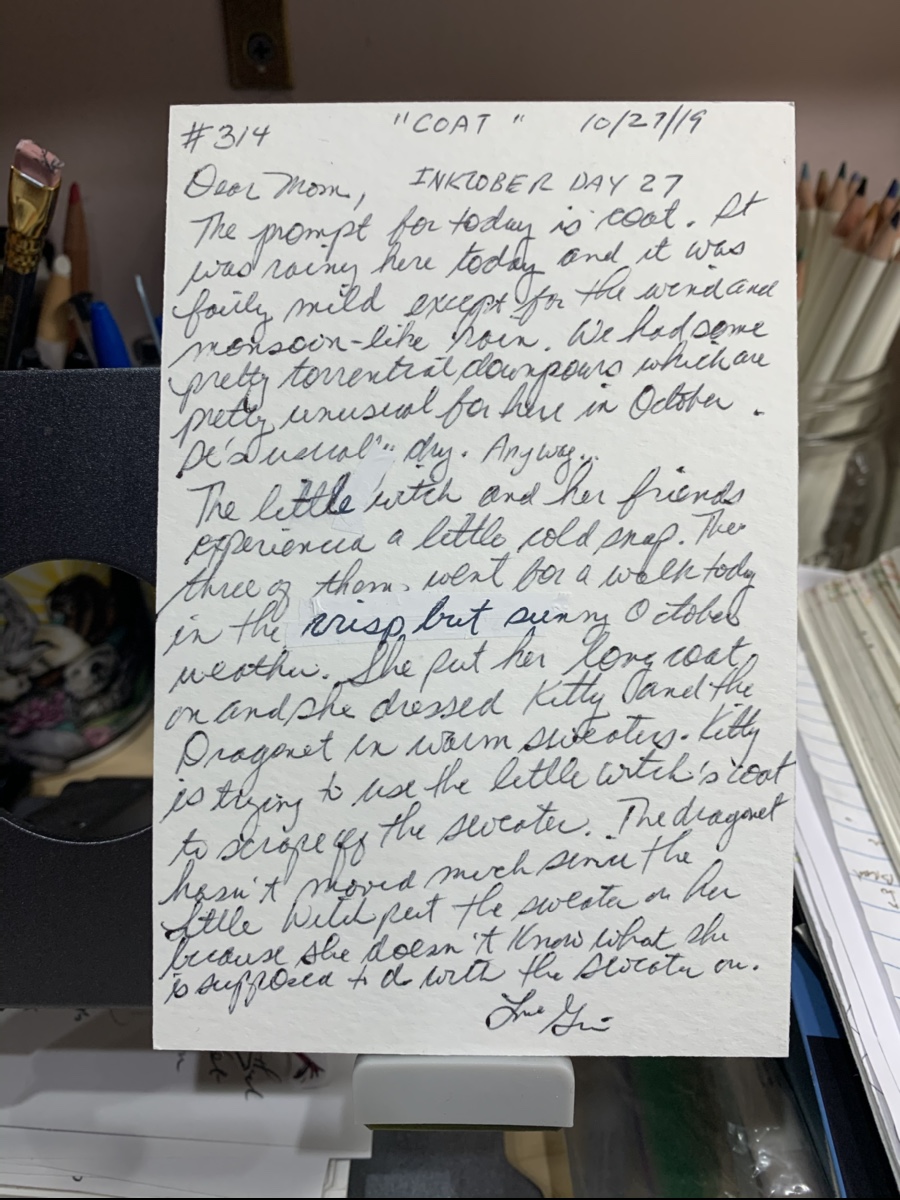 #314 "COAT" 10/27/19
Dear Mom, INKTOBER DAY 27
The prompt for today is coat. It
was rainy here today and it was
fairly mild except for the wind and
monsoon-like rain. We had some
pretty torrential downpours which are
pretty unusual for here in October.
It's usual" dry. Anyway...
The little witch and her friends
experienced a little cold snap. The
three of them went for a walk today
in the crisp but sunny October
weather. She put her long coat
on and she dressed Kitty and the
Dragonet in warm sweaters. Kitty
is trying to use the little witch's coat
to scrape off the sweater. The dragonet
hasn't moved much since the
little Witch put the sweater on her
because she doesn't know what she
is supposed to do with the sweater on.
Love